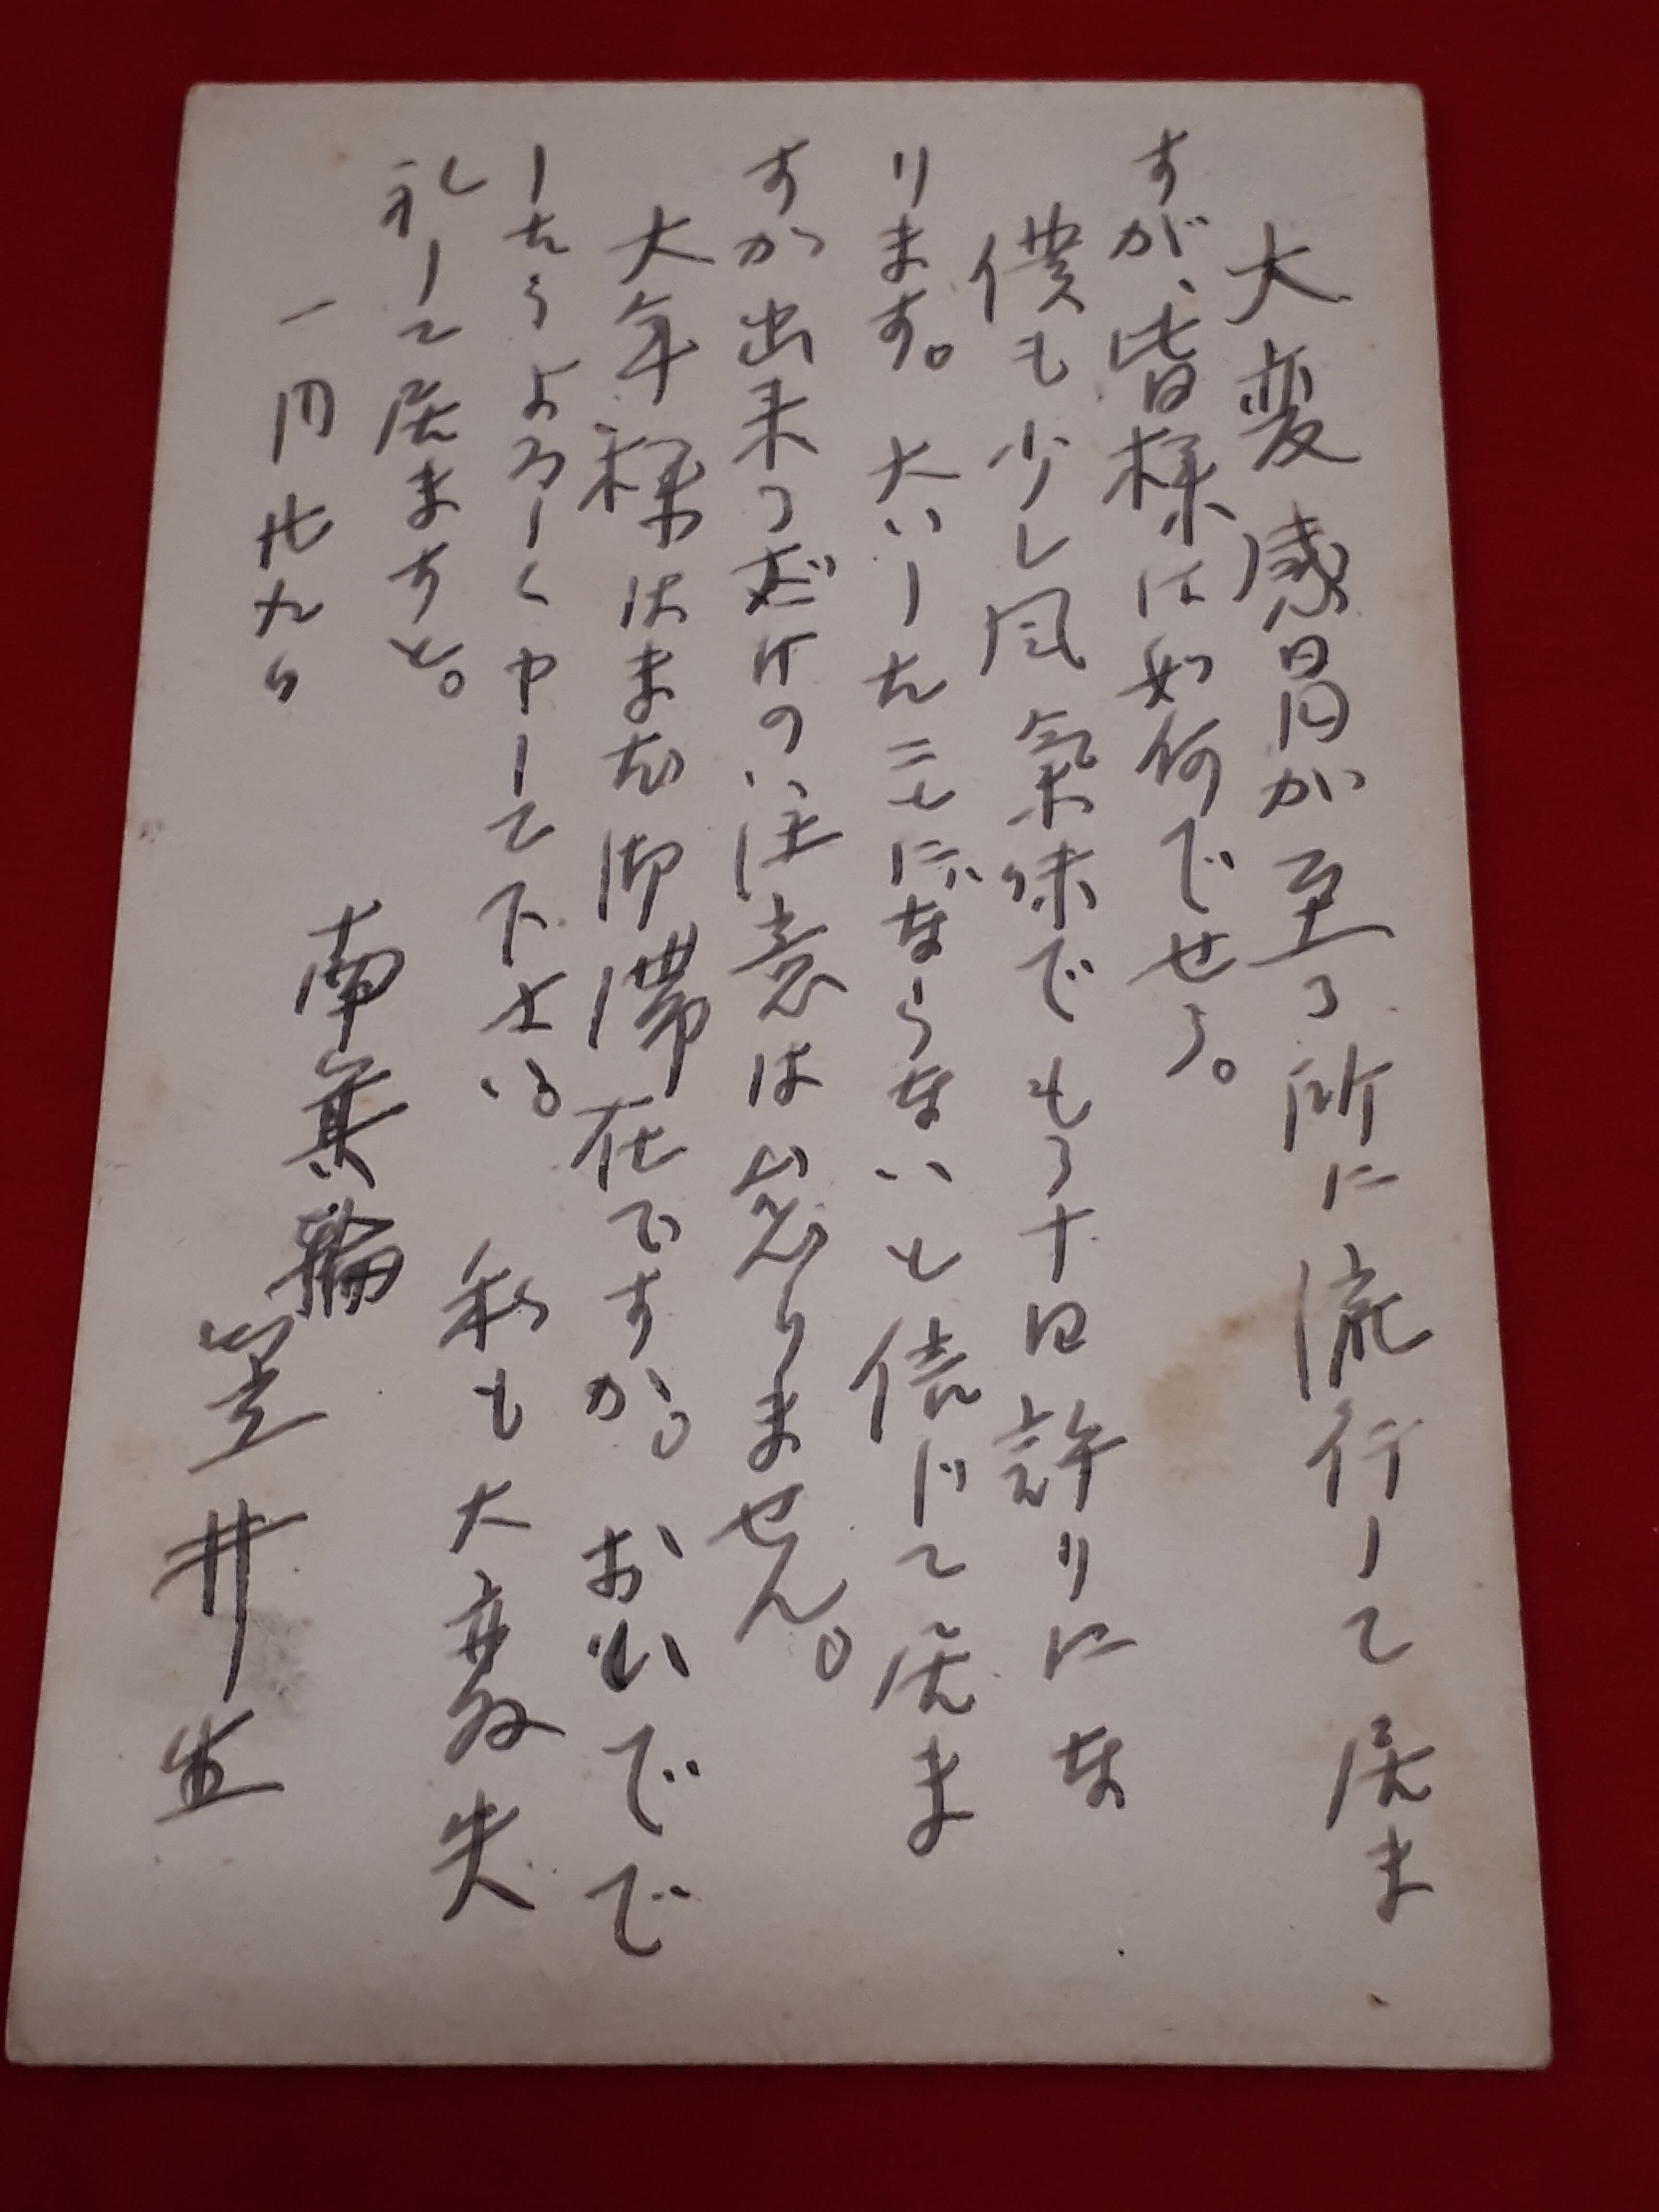 大変感冒が至る所に流行して居ま
すが、皆様は如何でせう。
僕も少し風氣味でもう十日許りにな
ります。大いした事にはならないと信じて居ま
すが出来るだけの注意は怠りません。
大年様はまだ御滞在ですか。おいでで
したらよろしく申して下さい。私も大変失
礼して居ますと。
一月廿九日
南箕輪
笠井生